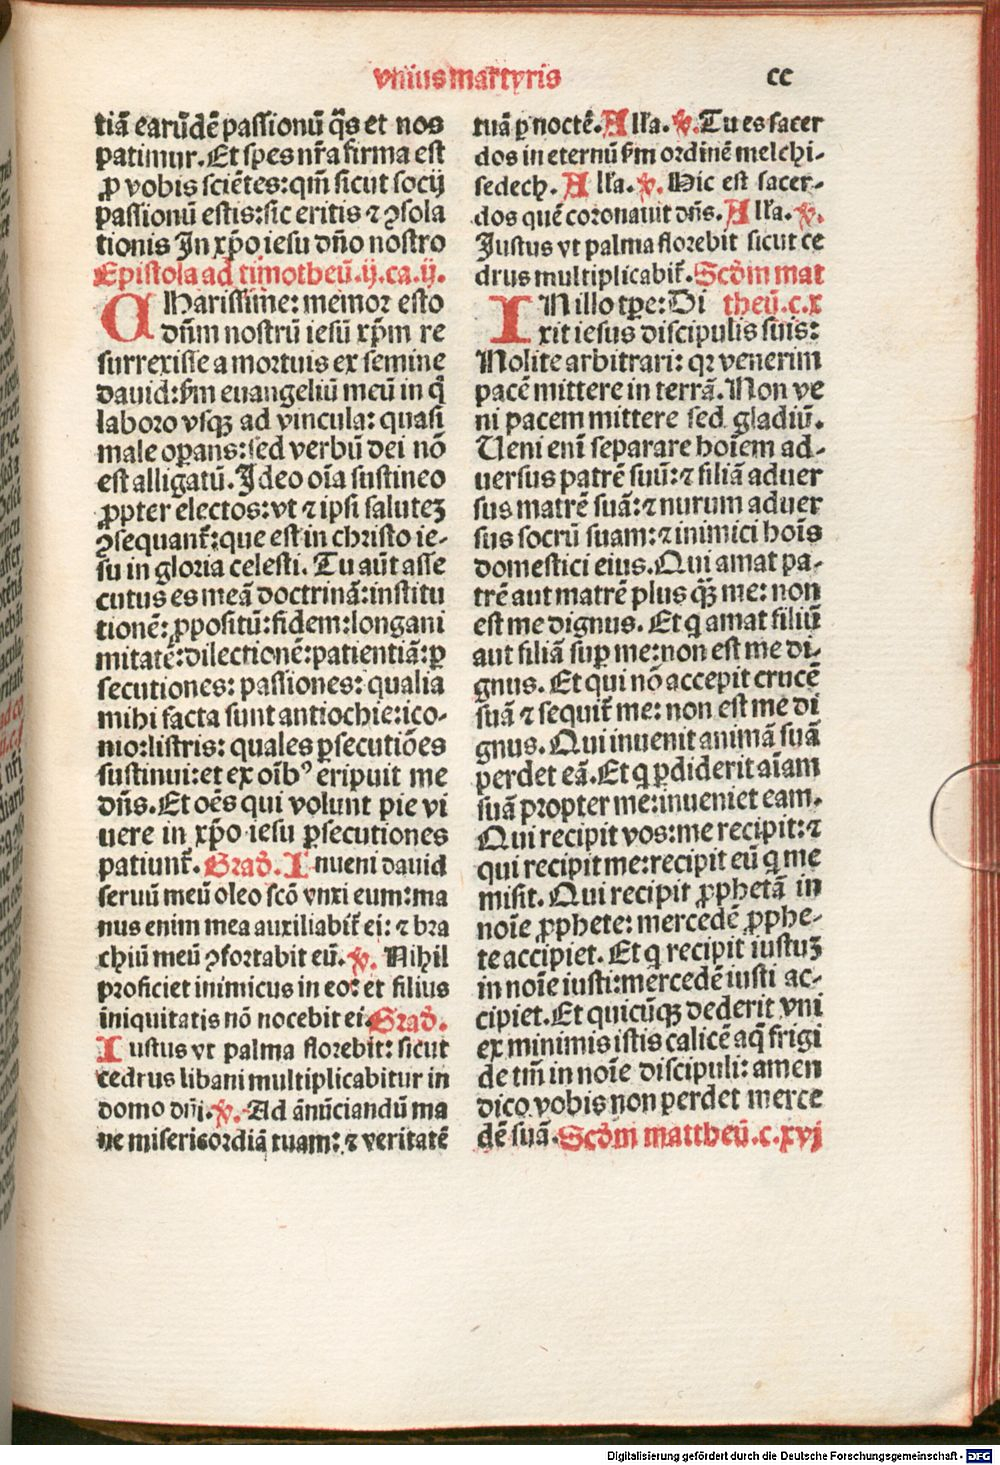 vnius martyris
cc
tiā earūdē passionū q̄s et nos
patimur. Et spes nr̄a firma est
ꝓ vobis sciētes: qm̄ sicut socij
passionū estis: sic eritis ⁊ ꝯsola
tionis In xp̄o iesu dn̄o nostro
Epistola ad timotheū .ij. ca. ij.
CHarissime: memor esto
dn̄m nostrū iesū xp̄m re
surrexisse a mortuis ex semine
dauid: ẜm euangeliū meū in q̄
laboro vsqꝫ ad vincula: quasi
male oꝑans: sed verbū dei nō
est alligatū. Ideo oīa sustineo
ꝓpter electos: vt ⁊ ipsi saluteꝫ
ꝯsequant̄: que est in christo ie-
su in gloria celesti. Tu aūt asse
cutus es meā doctrinā: institu
tionē: ꝓpositū: fidem: longani
mitatē: dilectionē: patientiā: ꝑ
secutiones: passiones: qualia
mihi facta sunt antiochie: ico-
mo: listris: quales ꝑsecutiōes
sustinui: et ex oībꝰ eripuit me
dn̄s. Et oēs qui volunt pie vi
uere in xp̄o iesu ꝑsecutiones
patiunt̄. Grad̄. Inueni dauid
seruū meū oleo scō vnxi eum: ma
nus enim mea auxiliabit̄ ei: ⁊ bra
chiū meū ꝯfortabit eū. ℣. Nihil
proficiet inimicus in eo: et filius
iniquitatis nō nocebit ei. Grad̄.
Iustus vt palma florebit: sicut
cedrus libani multiplicabitur in
domo dn̄i. ℣. Ad ānūciandū ma
ne misericordiā tuam: ⁊ veritatē
tuā ꝑ noctē. Alľa. ℣. Tu es sacer
dos in eternū ẜm ordinē melchi-
sedech. Alľa. ℣. Hic est sacer-
dos quē coronauit dn̄s. Alľa. ℣.
Iustus vt palma florebit sicut ce
drus multiplicabit̄. Scd̄m mat
IN illo tꝑe: Di theū. c. x
xit iesus discipulis suis:
Nolite arbitrari: qꝛ venerim
pacē mittere in terrā. Non ve
ni pacem mittere sed gladiū.
Ueni enī separare hoīem ad-
uersus patrē suū: ⁊ filiā aduer
sus matrē suā: ⁊ nurum aduer
sus socrū suam: ⁊ inimici hoīs
domestici eius. Qui amat pa-
trē aut matrē plus qꝫ̄ me: non
est me dignus. Et q amat filiū
aut filiā suꝑ me: non est me di-
gnus. Et qui nō accepit crucē
suā ⁊ sequit̄ me: non est me di
gnus. Qui inuenit animā suā
perdet eā. Et q ꝑdiderit aīam
suā propter me: inueniet eam.
Qui recipit vos: me recipit: ⁊
qui recipit me: recipit eū q me
misit. Qui recipit ꝓphetā in
noīe ꝓphete: mercedē ꝓphe-
te accipiet. Et q recipit iustuꝫ
in noīe iusti: mercedē iusti ac-
cipiet. Et quicūqꝫ dederit vni
ex minimis istis calicē aq̄ frigi
de tm̄ in noīe discipuli: amen
dico vobis non perdet merce
dē suā. Scd̄m mattheū. c. xvj
Digitalisierung gefördert durch die Deutsche Forschungsgemeinschaft - DFG